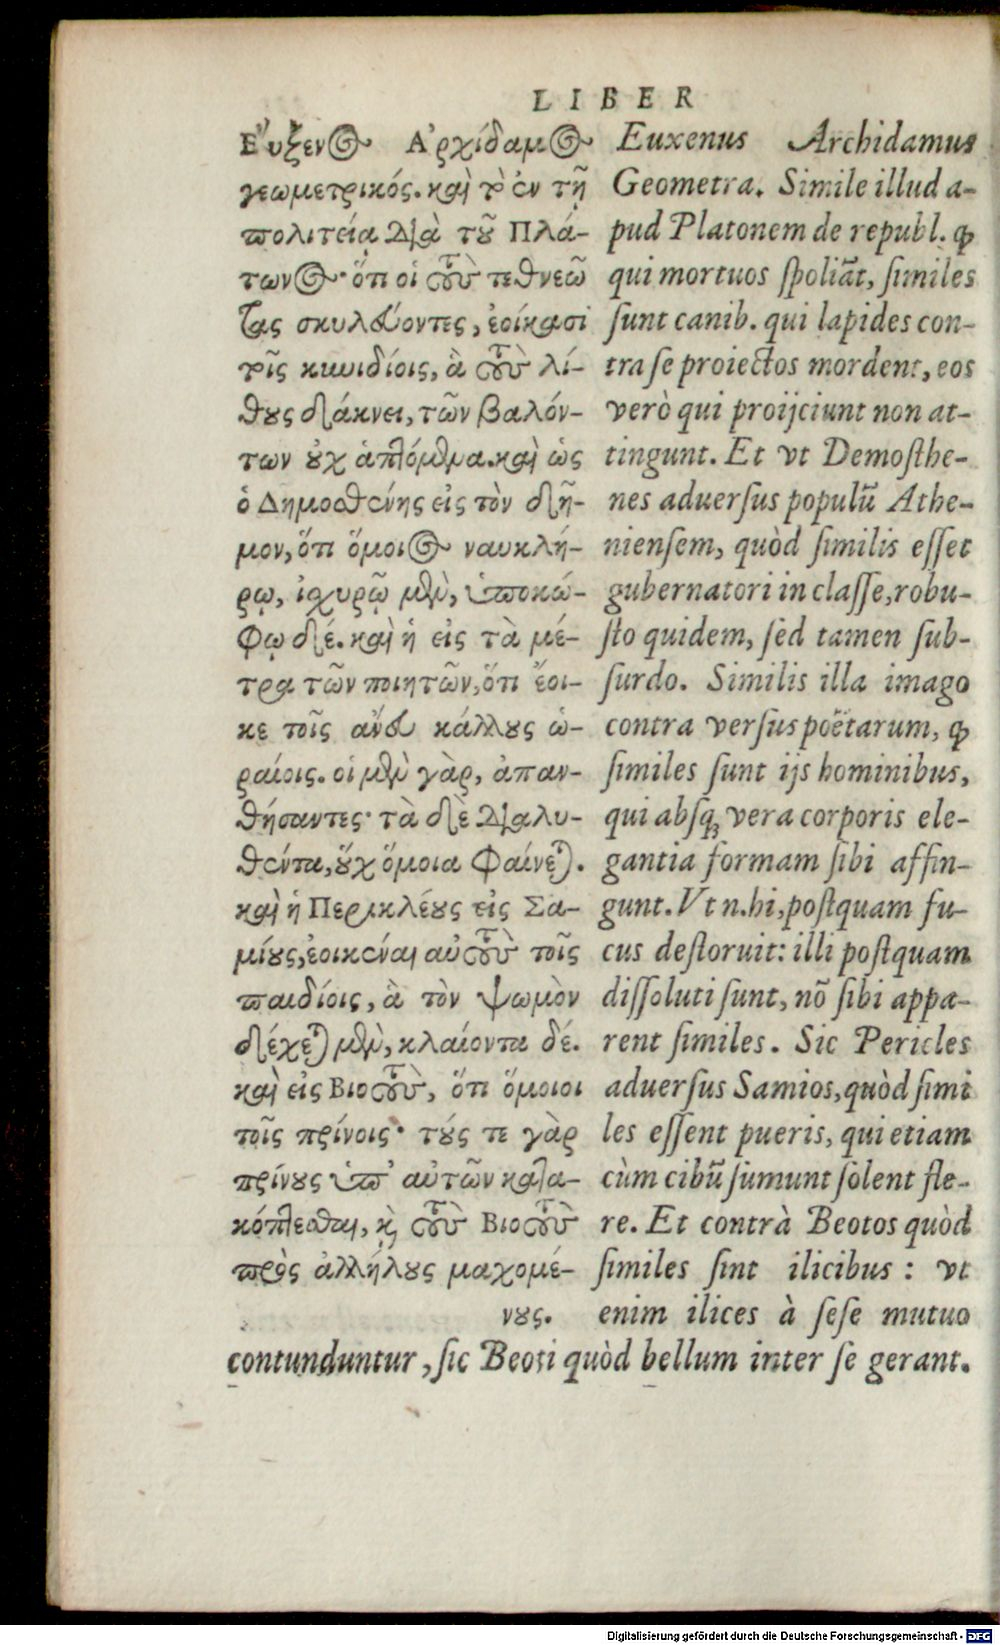 LIBER
Εὔξενος Ἀρχίδαμος
γεωμετρικός. καὶ τὸ ἐν τῇ
πολιτείᾳ διὰ τοῦ Πλά-
τωνος· ὅτι οἱ τοὺς τεθνεῶ
τας σκυλεύοντες, ἐοίκασι
τοῖς κυνιδίοις, ἃ τοὺς λί-
θους δάκνει, τῶν βαλόν-
των οὐχ ἁπτόμενα. καὶ ὡς
ὁ Δημοσθένης εἰς τὸν δῆ-
μον, ὅτι ὅμοιος ναυκλή-
ρῳ, ἰσχυρῷ μὲν, ὑποκώ-
φῳ δέ. καὶ ἡ εἰς τὰ μέ-
τρα τῶν ποιητῶν, ὅτι ἔοι-
κε τοῖς ἄνευ κάλλους ὡ-
ραίοις. οἱ μὲν γὰρ, ἀπαν-
θήσαντες· τὰ δὲ διαλυ-
θέντα, οὔχ ὅμοια φαίνεται.
καὶ ἡ Περικλέους εἰς Σα-
μίους, ἐοικέναι αὐτοὺς τοῖς
παιδίοις, ἃ τὸν ψωμὸν
δέχεται μὲν, κλαίοντα δέ.
καὶ εἰς Βιοτοὺς, ὅτι ὅμοιοι
τοῖς πρίνοις· τούς τε γὰρ
πρίνους ὑπ' αὐτῶν κατα-
κόπτεσθαι, καὶ τοὺς Βιοτοὺς
πρὸς ἀλλήλους μαχομέ-
νους.
Euxenus Archidamus
Geometra. Simile illud a-
pud Platonem de republ. ꝙ
qui mortuos spoliãt, similes
sunt canib. qui lapides con-
tra se proiectos mordent, eos
verò qui proijciunt non at-
tingunt. Et vt Demosthe-
nes aduersus populũ Athe-
niensem, quòd similis esset
gubernatori in classe, robu-
sto quidem, sed tamen sub-
surdo. Similis illa imago
contra versus poëtarum, ꝙ
similes sunt ijs hominibus,
qui absq; vera corporis ele-
gantia formam sibi affin-
gunt. Vt n. hi, postquam fu-
cus defloruit: illi postquam
dissoluti sunt, nõ sibi appa-
rent similes. Sic Pericles
aduersus Samios, quòd simi
les essent pueris, qui etiam
cùm cibũ sumunt solent fle-
re. Et contrà Beotos quòd
similes sint ilicibus: vt
enim ilices à sese mutuo
contunduntur, sic Beoti quòd bellum inter se gerant.
Digitalisierung gefördert durch die Deutsche Forschungsgemeinschaft - DFG